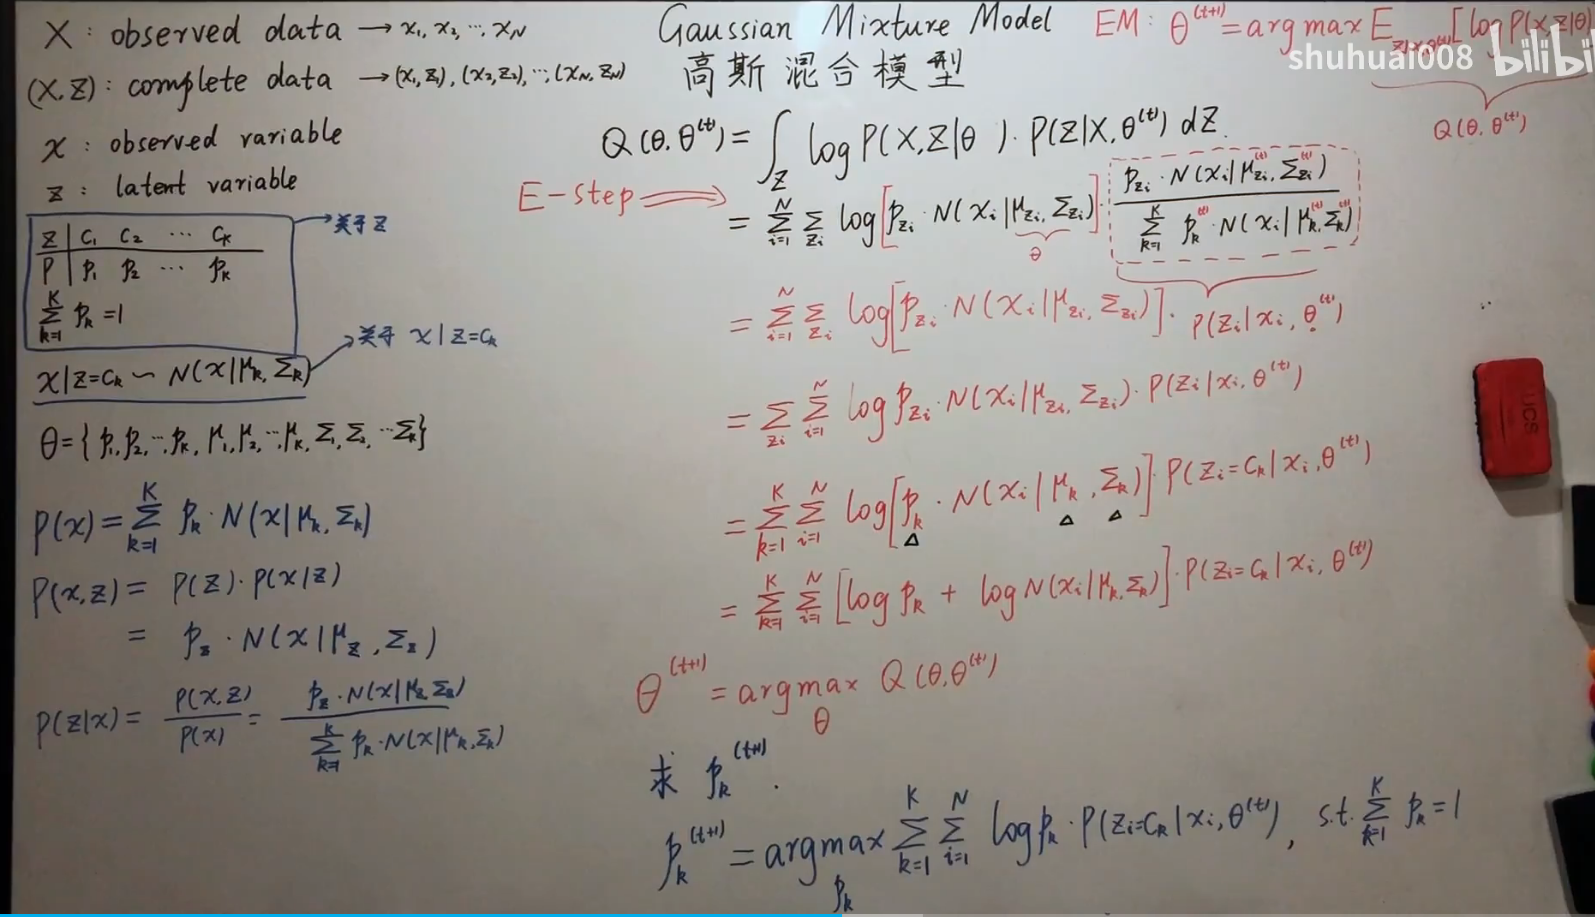 X : observed data → x₁, x₂, ⋯, x_N
(X, Z) : complete data → (x₁, z₁), (x₂, z₂), ⋯, (x_N, z_N)
x : observed variable
z : latent variable
z | C₁ C₂ ⋯ C_k
P | p₁ p₂ ⋯ p_k
→ 关于 z
∑_{k=1}^{K} p_k = 1
→ 关于 x | z = C_k
x | z = C_k ~ N(x | μ_k, Σ_k)
θ = { p₁, p₂, ⋯, p_k, μ₁, μ₂, ⋯, μ_k, Σ₁, Σ₂, ⋯ Σ_k }
P(x) = ∑_{k=1}^{K} p_k · N(x | μ_k, Σ_k)
P(x, z) = P(z) · P(x | z)
= p_z · N(x | μ_z, Σ_z)
P(z | x) = P(x, z) / P(x) = p_z · N(x | μ_z, Σ_z) / ∑_{k=1}^{K} p_k · N(x | μ_k, Σ_k)
Gaussian Mixture Model
高斯混合模型
EM : θ^{(t+1)} = argmax E [log P(x, z | θ)
shuhuai008 bilibi
Q(θ, θ^{(t)})
Q(θ, θ^{(t)}) = ∫_Z log P(X, Z | θ) · P(Z | X, θ^{(t)}) dZ.
E-step ⟹
= ∑_{i=1}^{N} ∑_{z_i} log [p_{z_i} · N(x_i | μ_{z_i}, Σ_{z_i})] · p_{z_i} · N(x_i | μ_{z_i}^{(t)}, Σ_{z_i}^{(t)}) / ∑_{k=1}^{K} p_k^{(t)} · N(x_i | μ_k^{(t)}, Σ_k^{(t)})
θ
= ∑_{i=1}^{N} ∑_{z_i} log [p_{z_i} · N(x_i | μ_{z_i}, Σ_{z_i})] · P(z_i | x_i, θ^{(t)})
= ∑_{z_i} ∑_{i=1}^{N} log p_{z_i} · N(x_i | μ_{z_i}, Σ_{z_i}) · P(z_i | x_i, θ^{(t)})
= ∑_{k=1}^{K} ∑_{i=1}^{N} log [p_k · N(x_i | μ_k, Σ_k)] · P(z_i = C_k | x_i, θ^{(t)})
△ △ △
= ∑_{k=1}^{K} ∑_{i=1}^{N} [log p_k + log N(x_i | μ_k, Σ_k)] · P(z_i = C_k | x_i, θ^{(t)})
θ^{(t+1)} = argmax_θ Q(θ, θ^{(t)})
求 p_k^{(t+1)} .
p_k^{(t+1)} = argmax_{p_k} ∑_{k=1}^{K} ∑_{i=1}^{N} log p_k · P(z_i = C_k | x_i, θ^{(t)}) , s.t. ∑_{k=1}^{K} p_k = 1
UCS